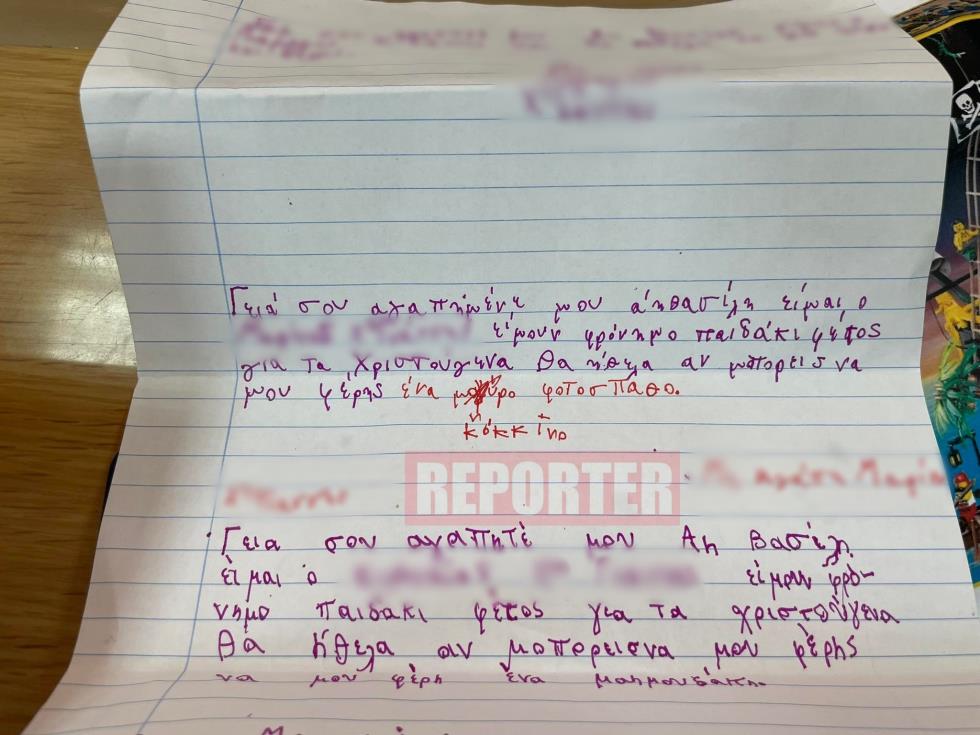 Γειά σου αγαπημένε μου άηθασίλη είμαι ο
είμουν φρόνημο παιδάκι φέτος
για τα Χριστουγενα θα ήθελα αν μπορεις να
μου φέρης ένα μαύρο φοτοσπαθο.
ή
κόκκινο
REPORTER
Γεια σου αγαπητέ μου Αη Βασέλη
είμαι ο είμουν φρό-
νημο παιδάκι φέτος για τα χριστούγενα
θα ήθελα αν μοπορεισνα μου φέρης
να μου φέρη ένα μαημουδάκη.